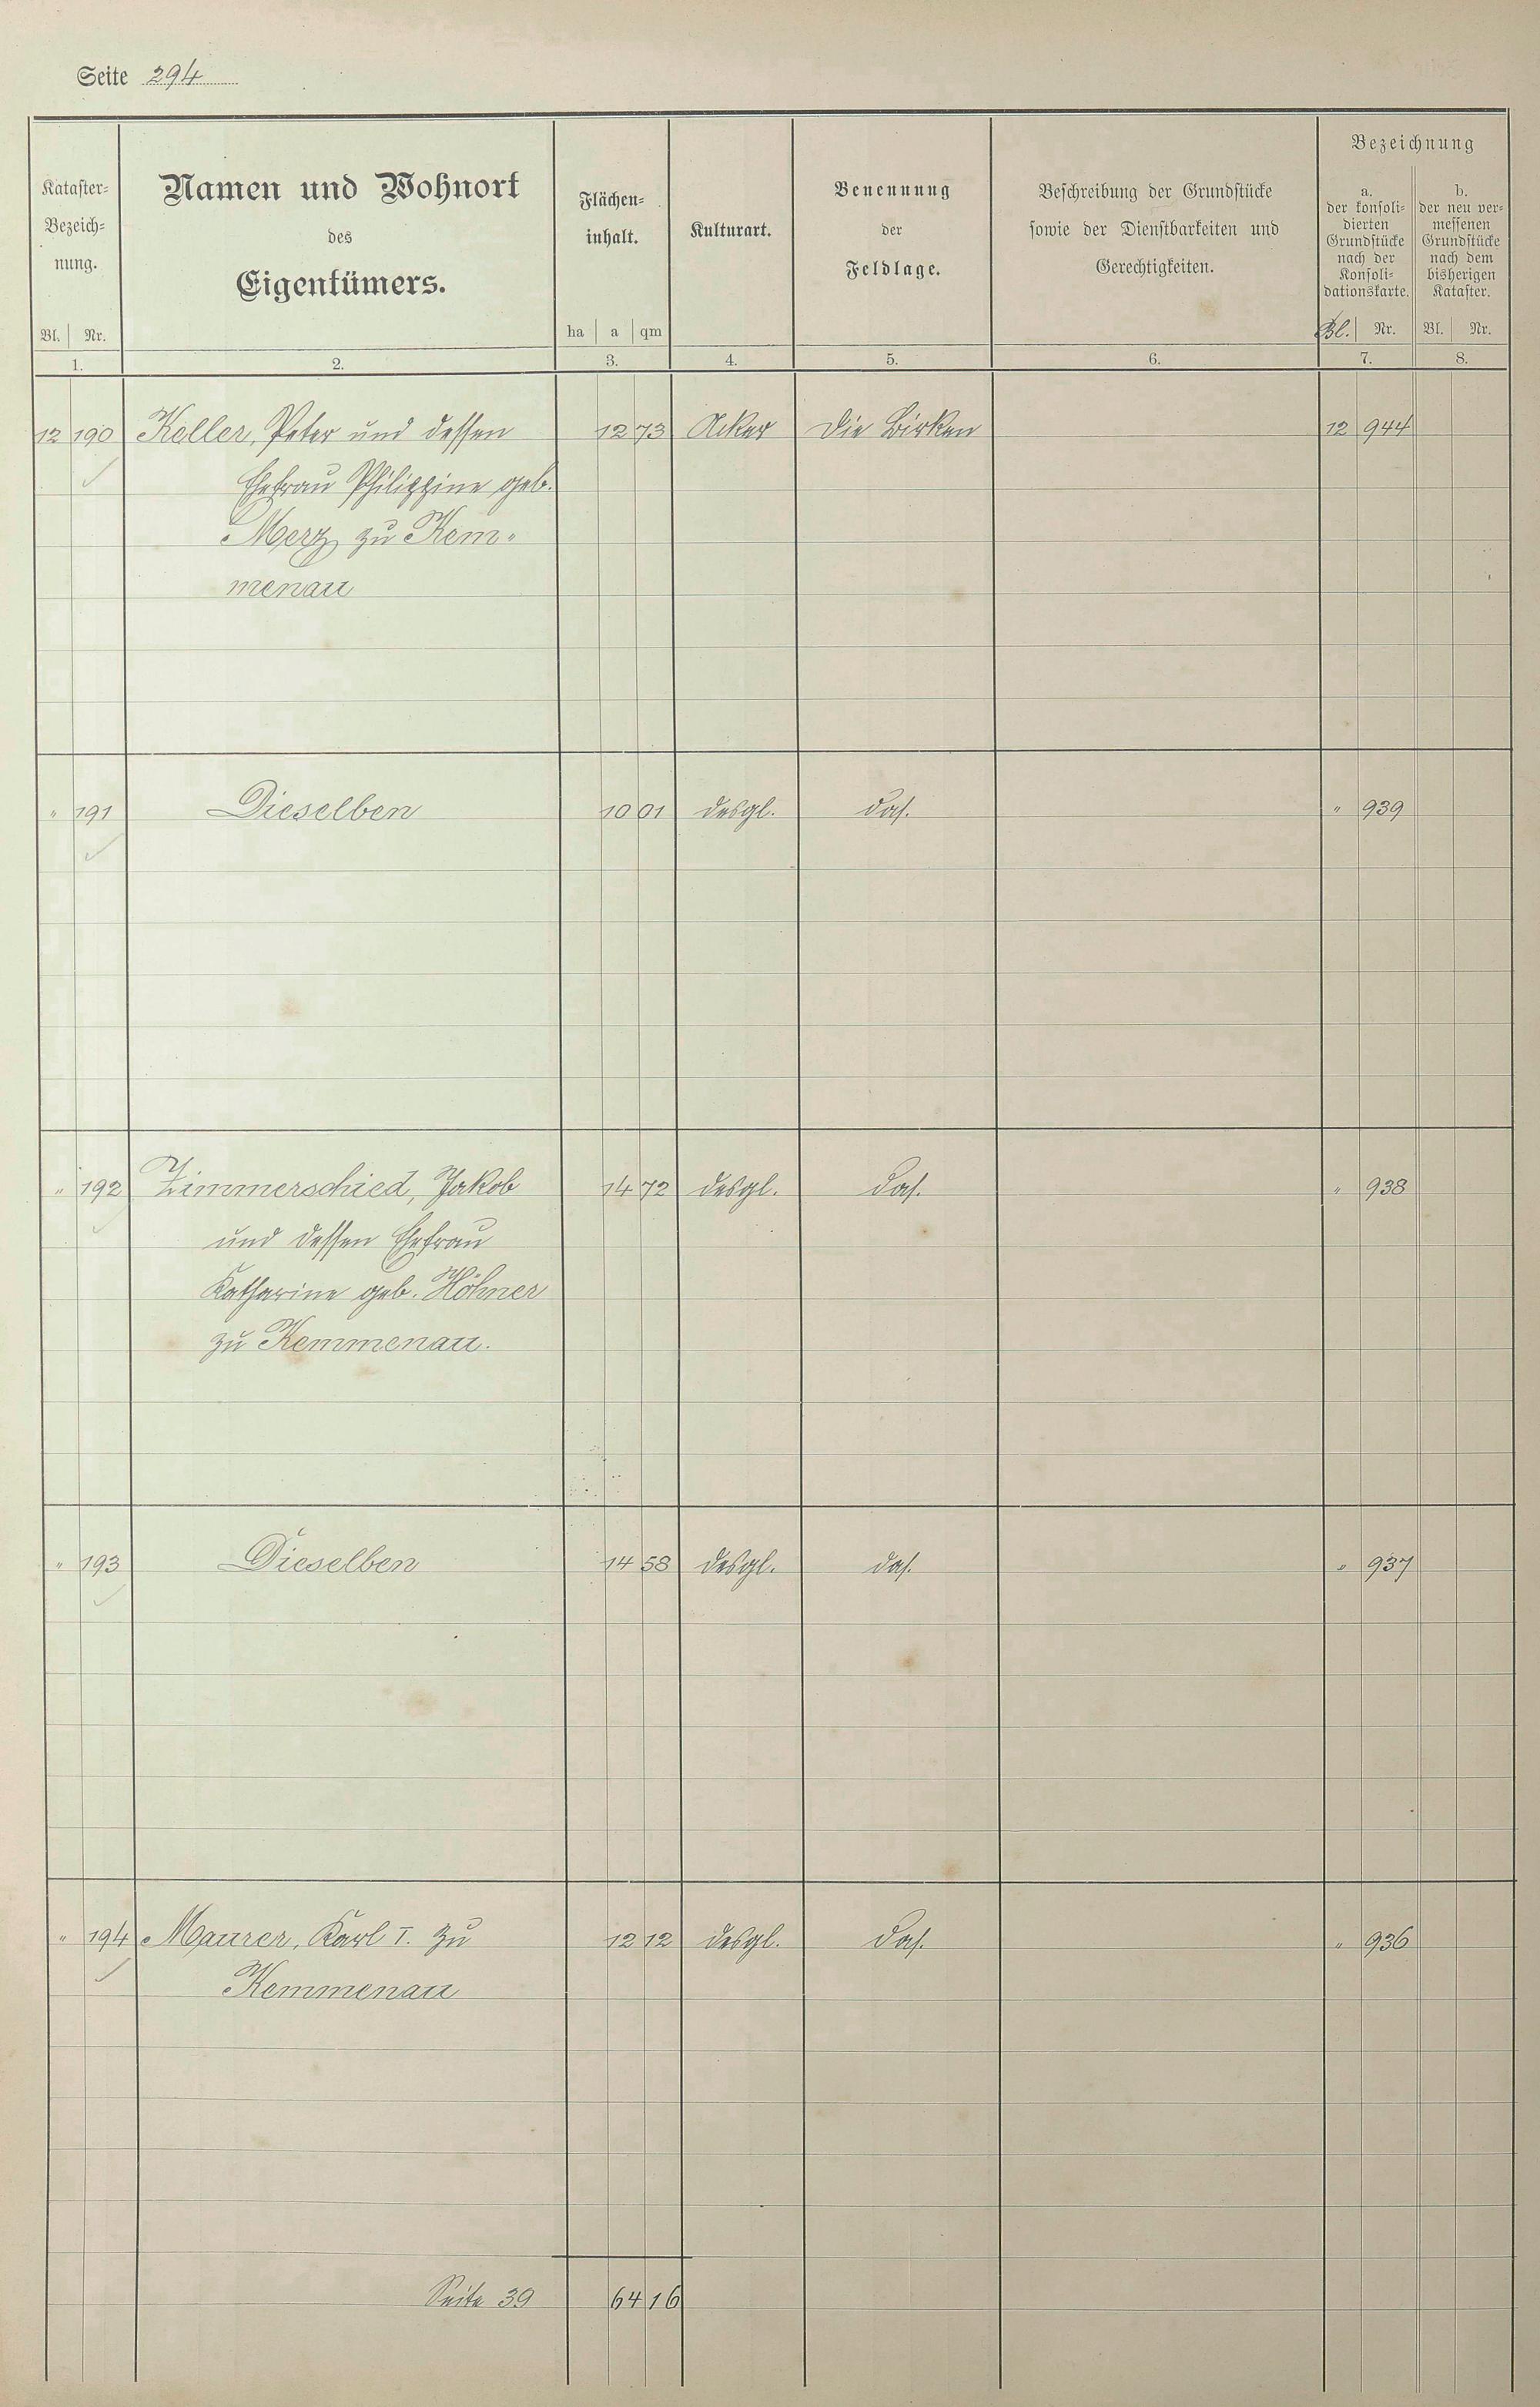 Seite 294
Kataster-
Bezeich-
nung.
Bl. Nr.
1.
Namen und Wohnort
des
Eigentümers.
2.
Flächen-
inhalt.
ha a qm
3.
Kulturart.
4.
Benennung
der
Feldlage.
5.
Beschreibung der Grundstücke
sowie der Dienstbarkeiten und
Gerechtigkeiten.
6.
Bezeichnung
a.
der konsoli-
dierten
Grundstücke
nach der
Konsoli-
dationskarte.
Bl. Nr.
7.
b.
der neu ver-
messenen
Grundstücke
nach dem
bisherigen
Kataster.
Bl. Nr.
8.
12 190 Keller, Peter und dessen 12 73 Acker Die Birken 12 944
Ehefrau Philippine geb.
Merz zu Kem-
menau
" 191 Dieselben 10 01 desgl. das. " 939
" 192 Zimmerschied, Jakob 14 72 desgl. das. " 938
und dessen Ehefrau
Katharine geb. Höhner
zu Kemmenau.
" 193 Dieselben 14 58 desgl. das. " 937
" 194 Maurer, Karl I. zu 12 12 desgl. das. " 936
Kemmenau
Seite 39 64 16